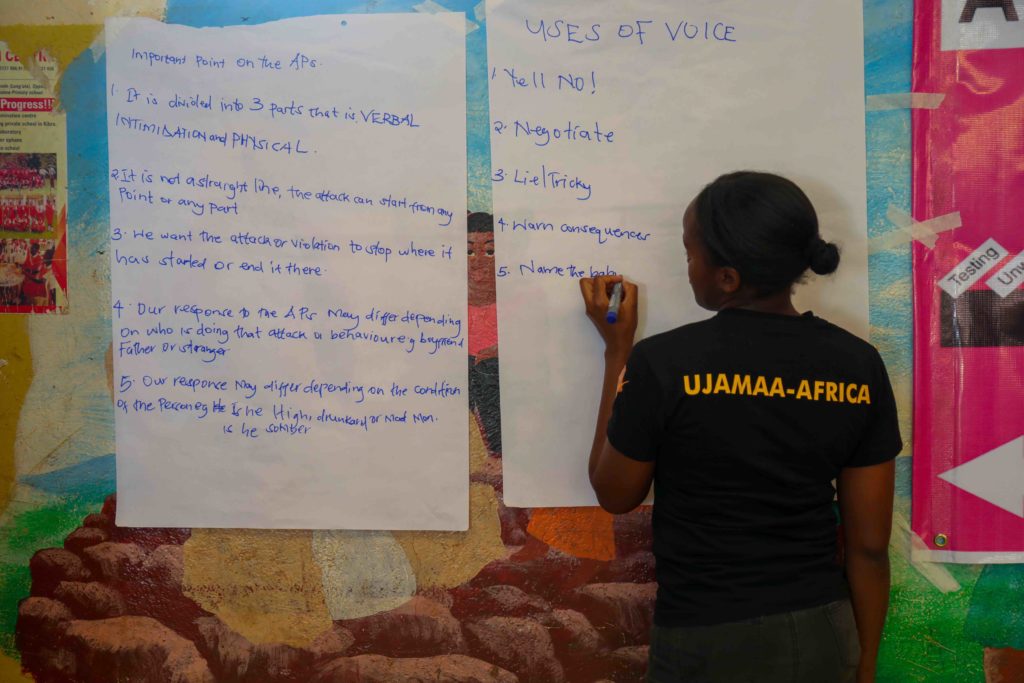 Important Point on the APs.
1. It is divided into 3 parts that is VERBAL
INTIMIDATION and PHYSICAL.
2. It is not a straight line, the attack can start from any
Point or any part
3. We want the attack or violation to stop where it
has started or end it there.
4. Our response to the APs May differ depending
on who is doing that attack or behaviour eg boyfriend
Father or stranger
5. Our responce May differ depending on the condition
of the Person eg Is he High, drunkard or Mad Man.
is he
USES OF VOICE
1. Yell NO!
2. Negotiate
3. Lie/Tricky
4. Warn consequences
5. Name the
UJAMAA-AFRICA
Progress!!
A
Testing